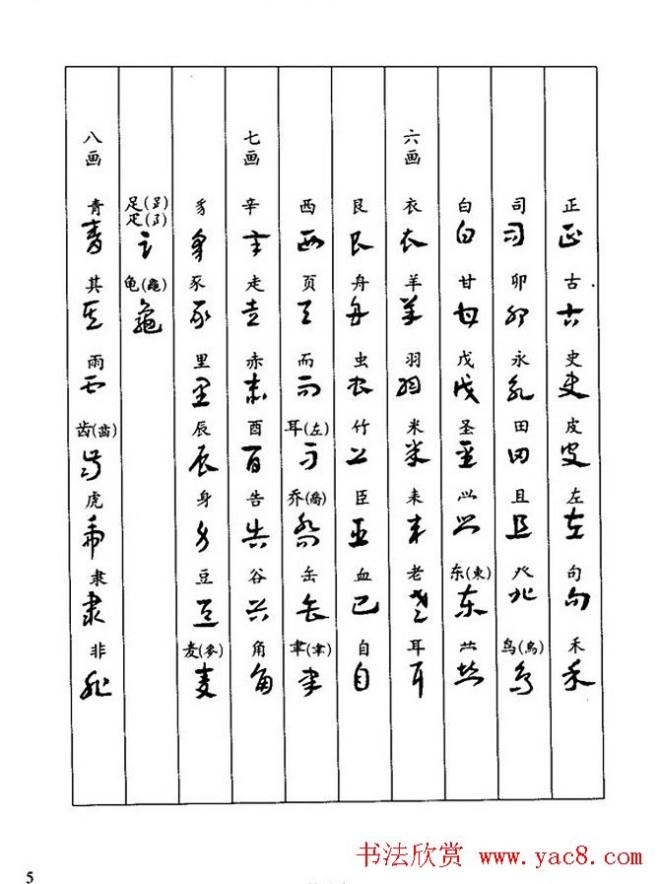 正 古 史 皮 左 句 禾
司 卯 永 田 且 癶 鸟(鳥)
白 甘 戊 圣 㠯 东(東) 龷
六画 衣 羊 羽 米 耒 老 耳
艮 舟 虫 竹 臣 血 自
西 页 而 耳(左) 乔(喬) 缶 聿(津)
七画 辛 走 赤 酉 告 谷 角
豸 豕 里 辰 身 豆 麦(麥)
足(𧾷) 龟(龜)
八画 青 其 雨 齿(齒) 虎 隶 非
书法欣赏 www.yac8.com
5